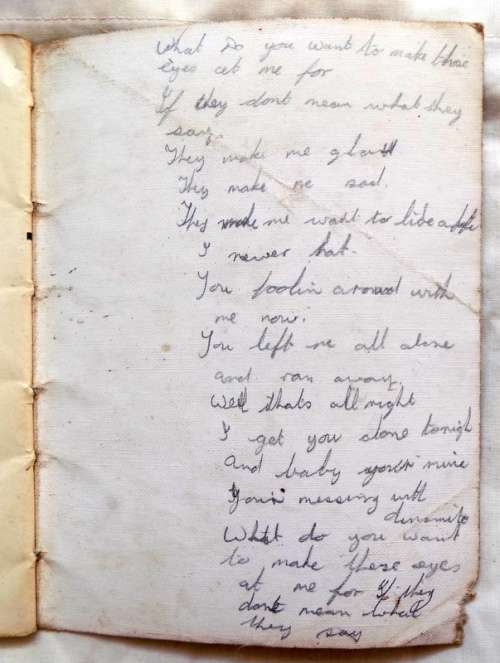 What Do you want to make those
eyes at me for
If they dont mean what they
say.
They make me glad
They make me sad.
They make me want to
I never hat.
You foolin around with
me now.
You left me all alone
and ran away
Well thats all right
I get you alone tonigh
and baby your mine
Your messing with
dinomite
What do you want
to make these eyes
at me for If they
dont mean what
they say